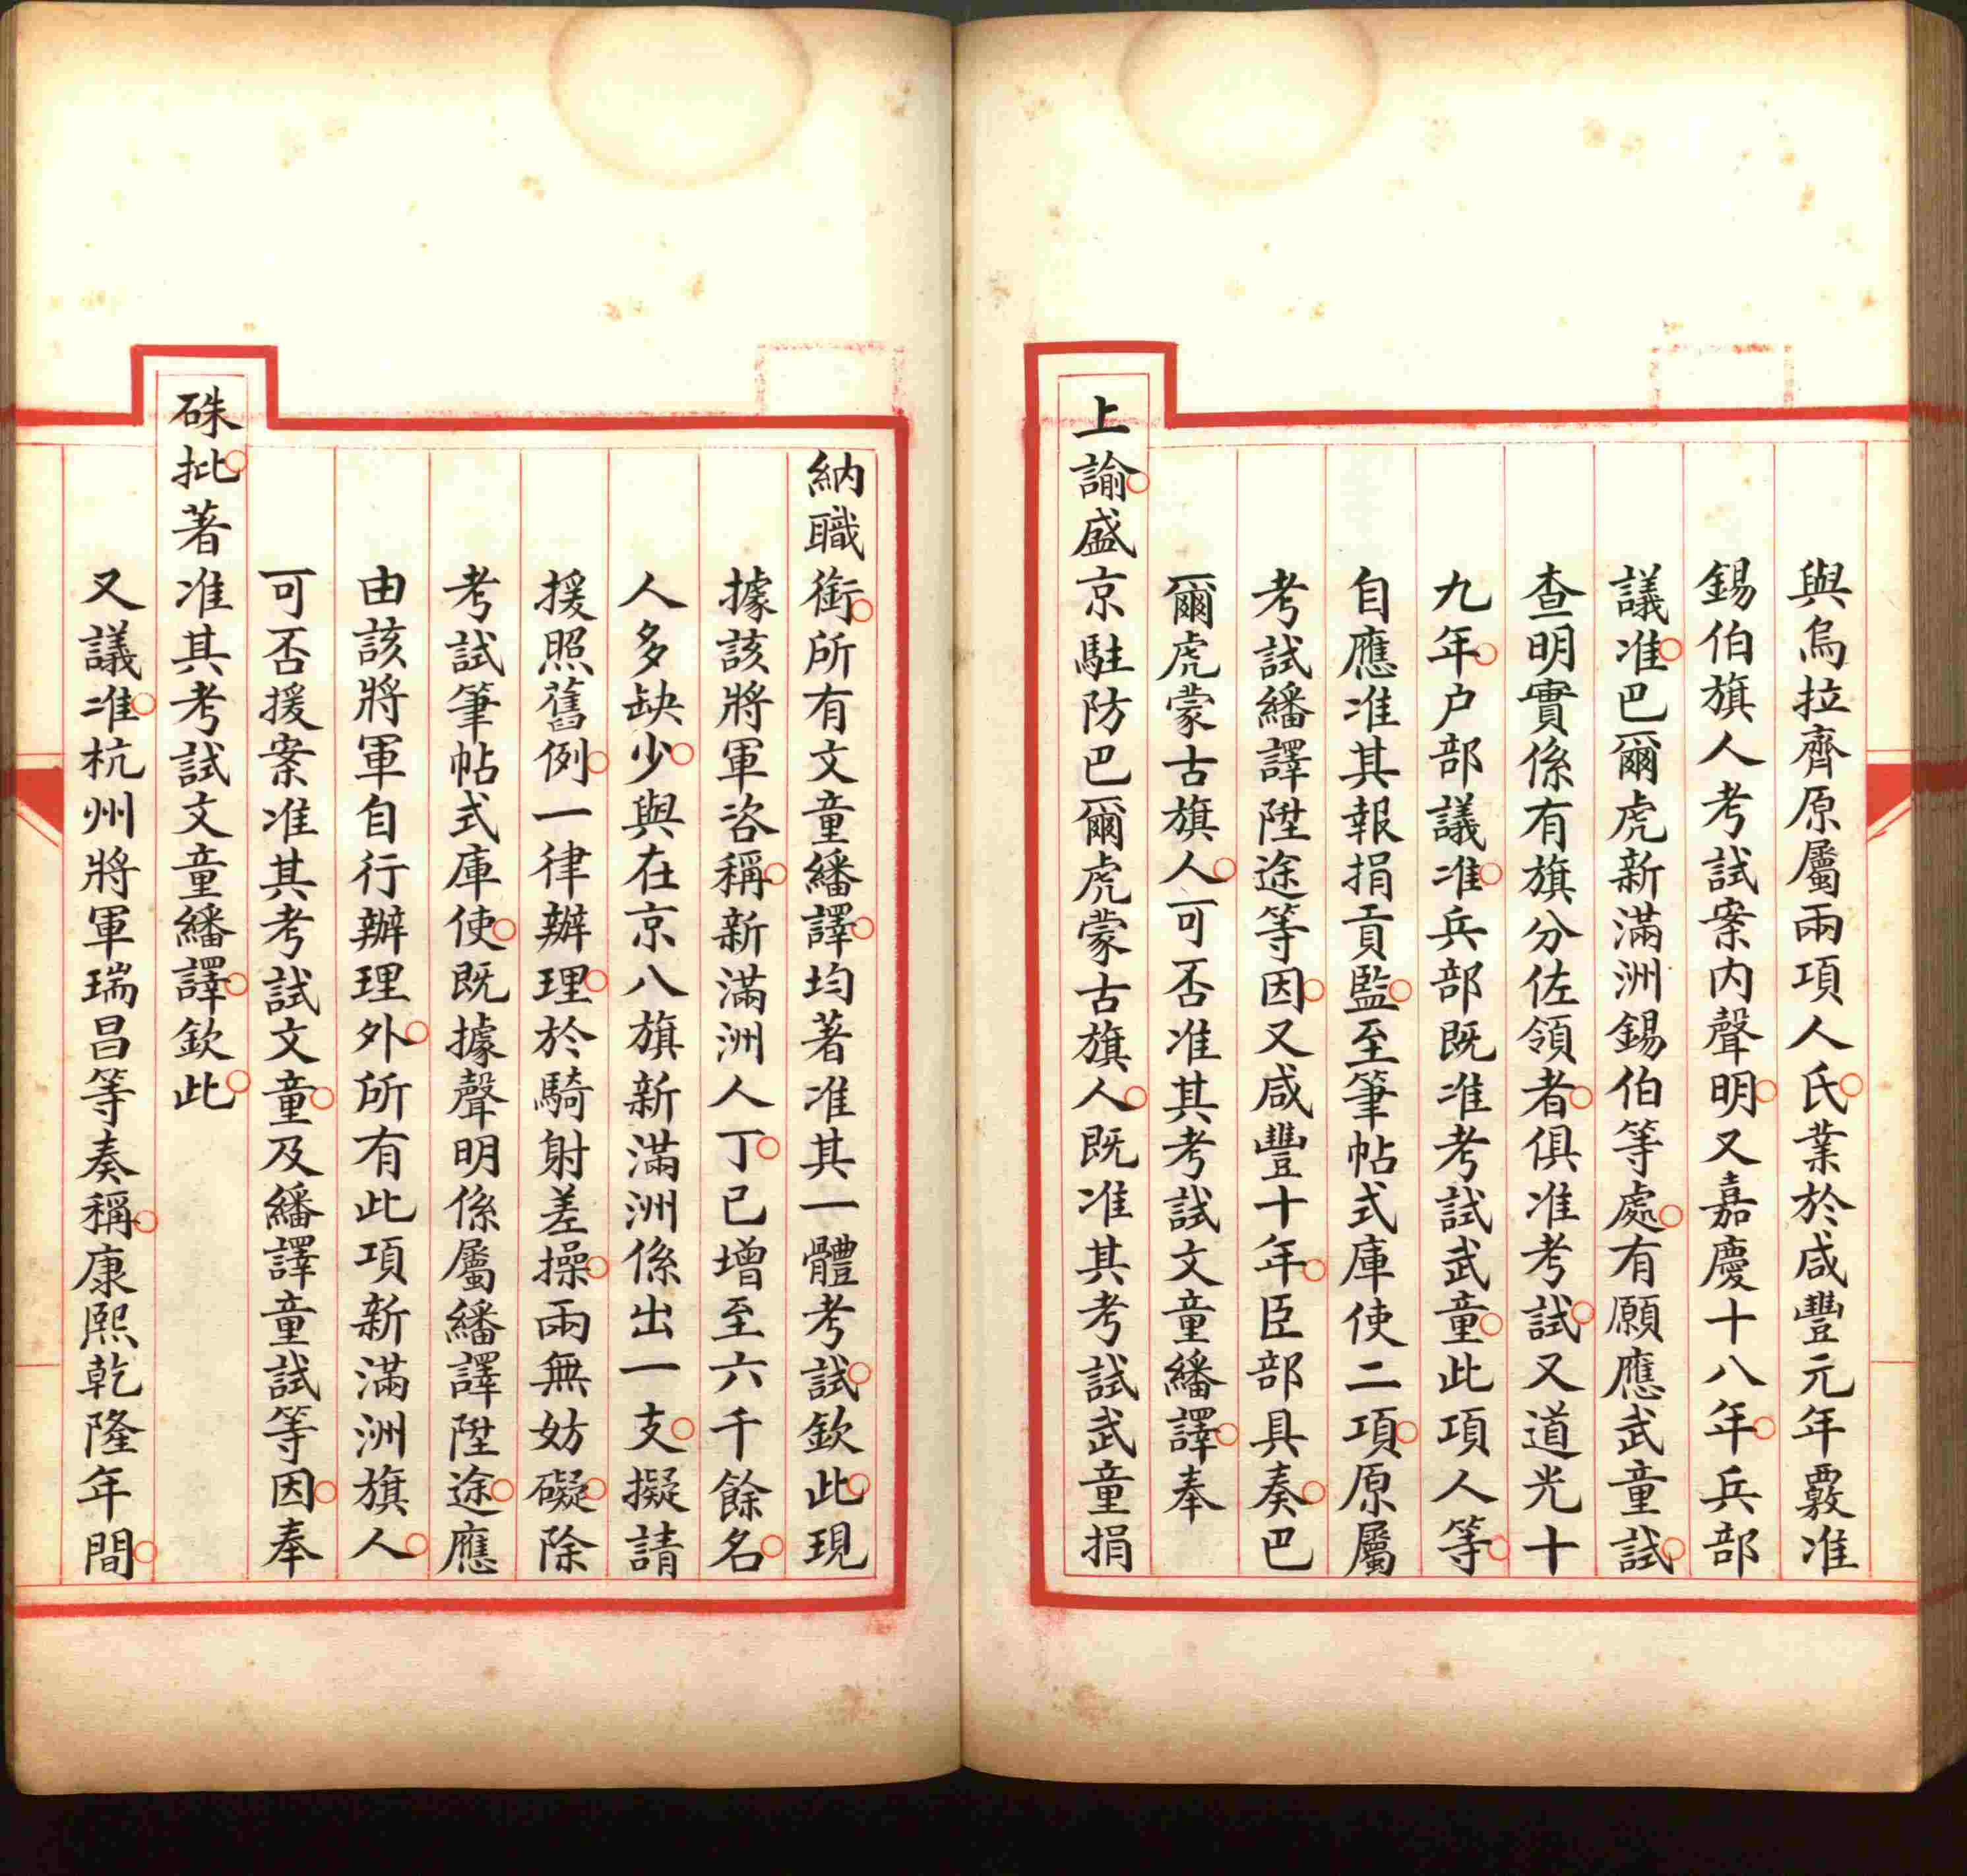 與烏拉齊原屬兩項人氏業於咸豐元年覈准
錫伯旗人考試案内聲明又嘉慶十八年兵部
議准巴爾虎新滿洲錫伯等處有願應武童試
查明實係有旗分佐領者俱准考試又道光十
九年户部議准兵部既准考試武童此項人等
自應准其報捐貢監至筆帖式庫使二項原屬
考試繙譯陞途等因又咸豐十年臣部具奏巴
爾虎蒙古旗人可否准其考試文童繙譯奉
上諭盛京駐防巴爾虎蒙古旗人既准其考試武童捐
納職銜所有文童繙譯均著准其一體考試欽此現
據該將軍咨稱新滿洲人丁已增至六千餘名
人多缺少與在京八旗新滿洲係出一支擬請
援照舊例一律辦理於騎射差操兩無妨礙除
考試筆帖式庫使既據聲明係屬繙譯陞途應
由該將軍自行辦理外所有此項新滿洲旗人
可否援案准其考試文童及繙譯童試等因奉
硃批著准其考試文童繙譯欽此
又議准杭州將軍瑞昌等奏稱康熙乾隆年間